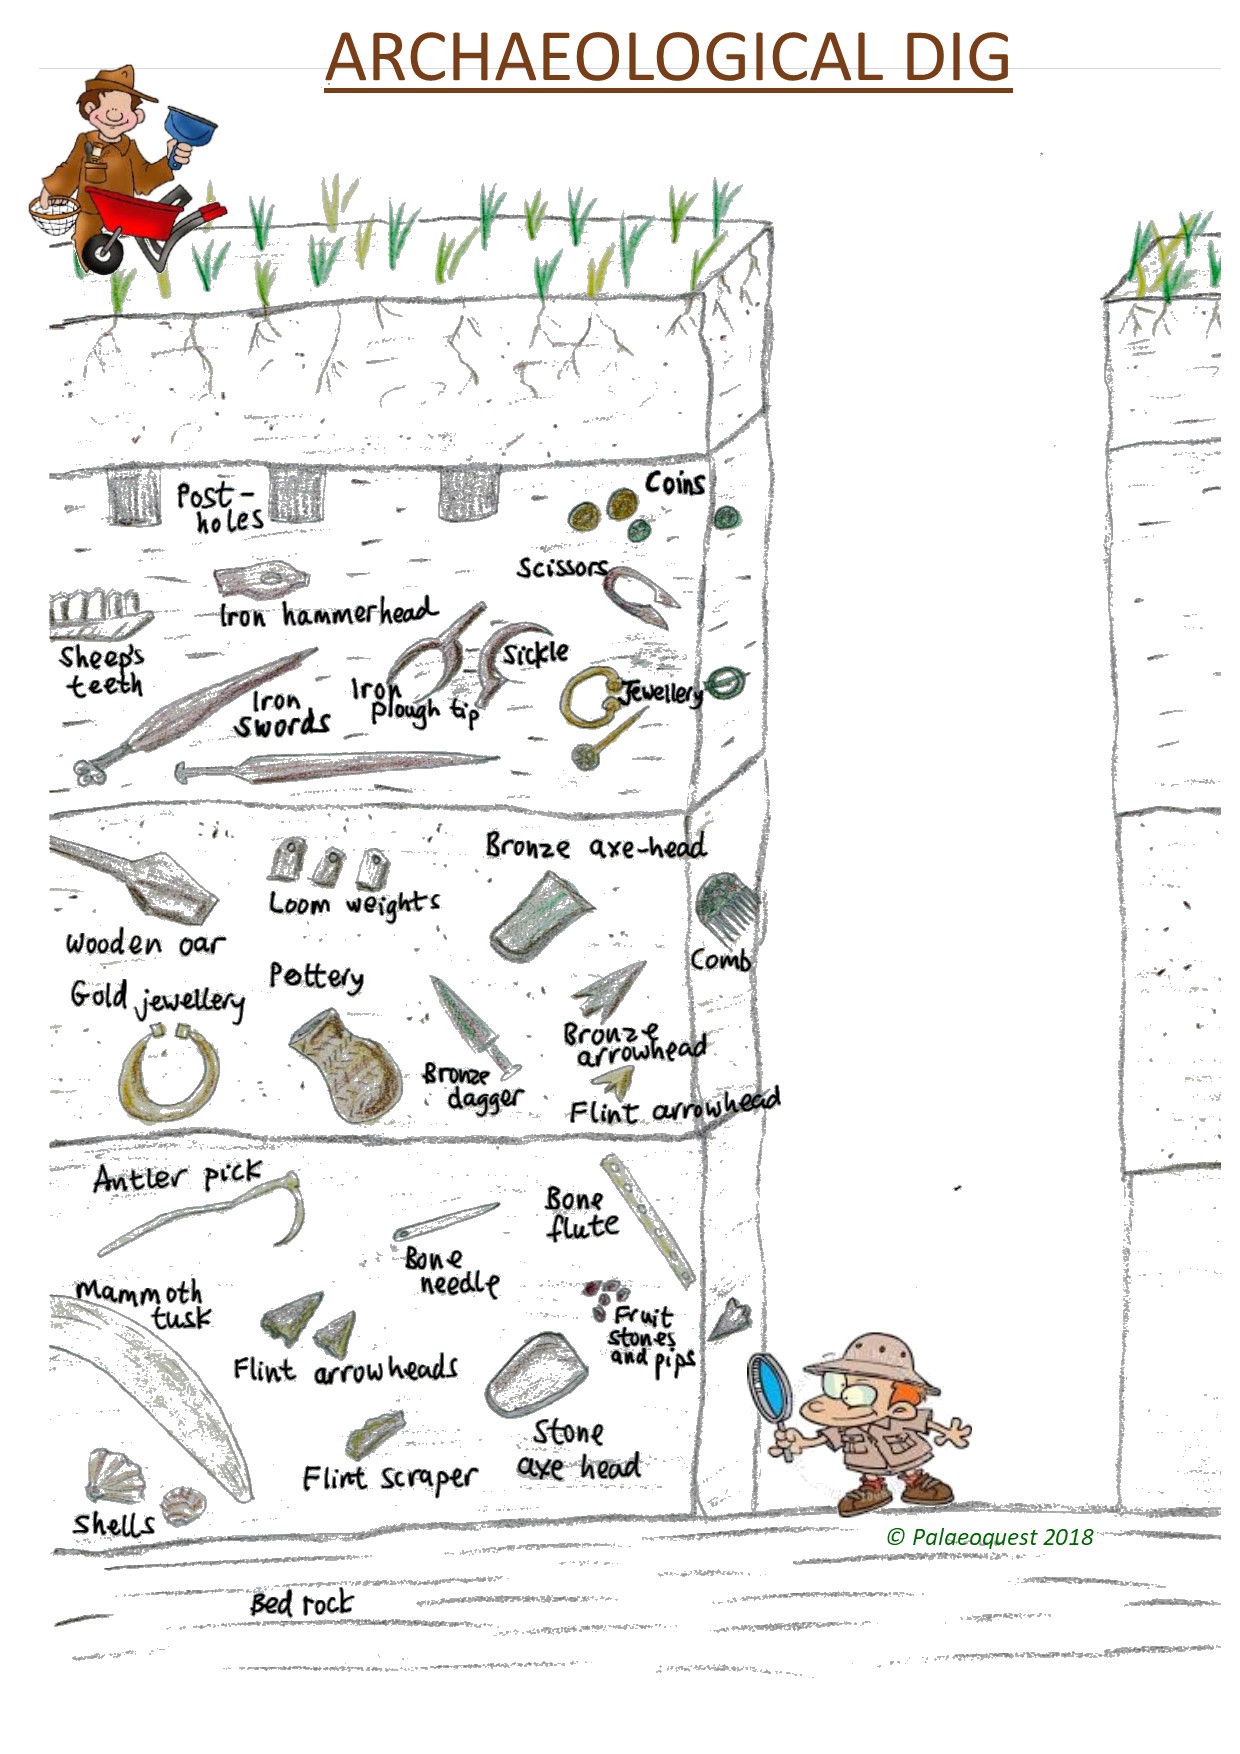 ARCHAEOLOGICAL DIG
Post-
holes
Coins
Scissors
Iron hammerhead
Sheep's
teeth
Iron
swords
Iron
plough tip
Sickle
Jewellery
Bronze axe-head
Loom weights
Wooden oar
Comb
Gold jewellery
Pottery
Bronze
dagger
Bronze
arrowhead
Flint arrowhead
Antler pick
Bone
flute
Bone
needle
Mammoth
tusk
Fruit
stones
and pips
Flint arrowheads
Stone
axe head
Flint scraper
Shells
© Palaeoquest 2018
Bed rock